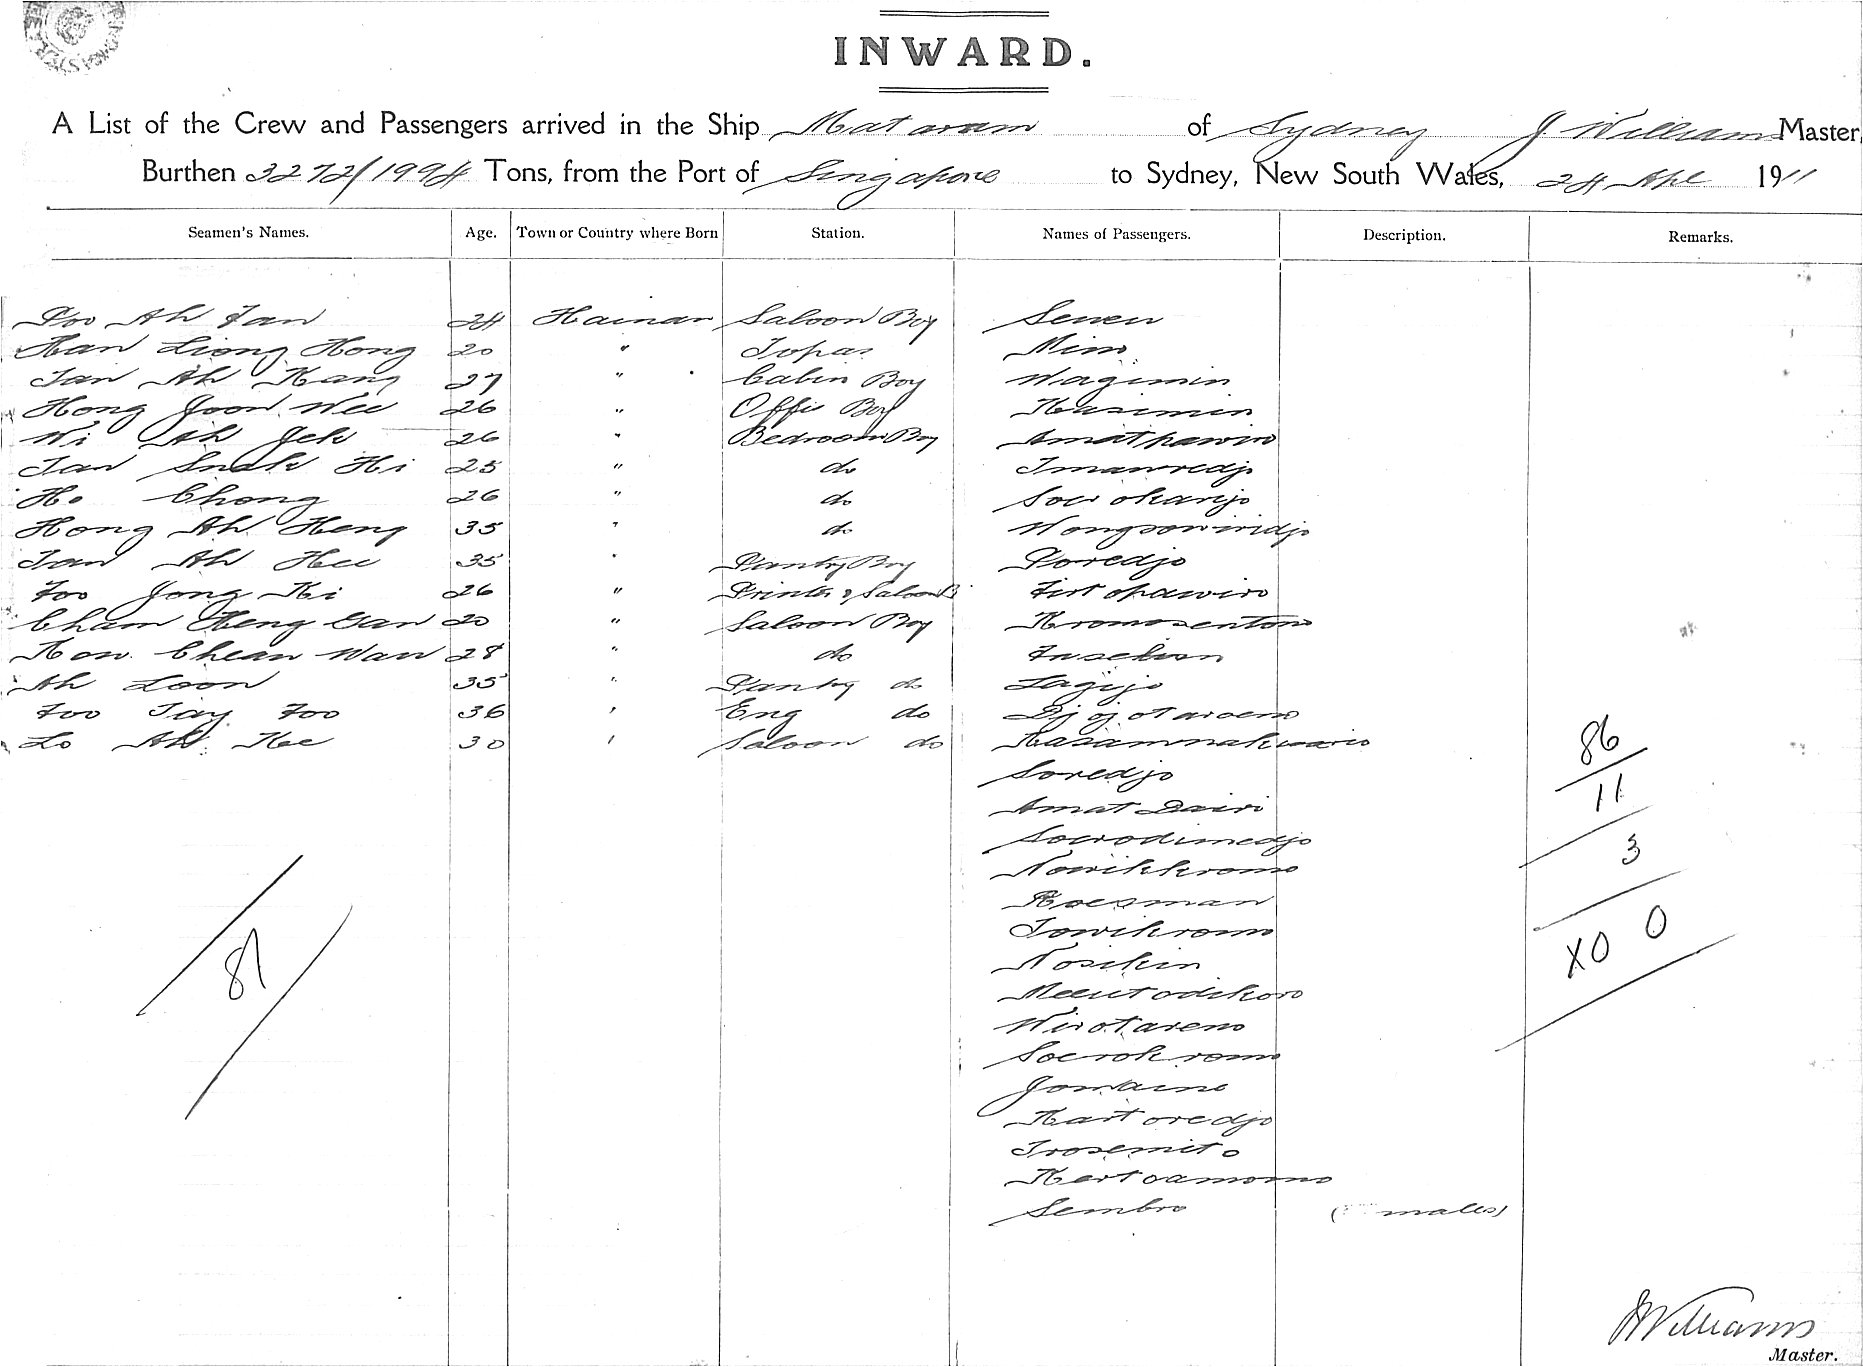 INWARD.
A List of the Crew and Passengers arrived in the Ship Mataram of Sydney J Williams Master,
Burthen 3272/1994 Tons, from the Port of Singapore to Sydney, New South Wales, 24 Apl 1911
Seamen's Names. Age. Town or Country where Born Station. Names of Passengers. Description. Remarks.
Foo Ah Fan 24 Hainan Saloon Boy Semen
Han Liong Hong 20 " Topas Mimo
Tan Ah Kang 27 " Cabin Boy Wagimin
Hong Joon Wee 26 " Offi Boy Kasimin
Wi Ah Jek 26 " Bedroom Boy Amatpawiro
Tan Snak Hi 25 " do Imanredjo
Ho Chong 26 " do
Hong Ah Heng 35 " do Wongsowiridjo
Tan Ah Hee 35 " Pantry Boy Poredjo
Foo Jong Ki 26 " Printer & Saloon B Tirtopawiro
Cham Heng Gan 20 " Saloon Boy Kromosentono
Kow Chean Wan 28 " do
Ah Loon 35 " Pantry do Lagijo
Foo Tay Foo 36 " Eng do Djojotaroeno
Lo Ah Kee 30 " Saloon do
86
Soredjo
11
Amat Dairi
Sorodimedjo
3
Nowikkromo
Roesman
Towikromo
X0 0
81
Nosikin
Meentodikoro
Wirotareno
Soerokromo
Jomaino
Kartoredjo
Trosemito
Kertoamomo
Sembro males)
JWilliams
Master.